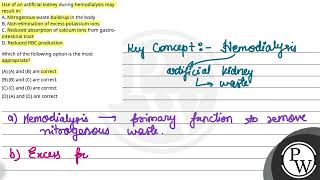 Use of an artificial kidney during hemodialysis may
result in:
A. Nitrogenous waste build-up in the body
B. Non-elimination of excess potassium ions
C. Reduced absorption of calcium ions from gastro-
intestinal tract
D. Reduced RBC production
Which of the following option is the most
appropriate?
(A) (A) and (B) are correct
(B) (B) and (C) are correct
(C) (C) and (D) are correct
(D) (A) and (D) are correct
Key Concept :- Hemodialysis
artificial kidney
↳ waste
a) Hemodialysis → primary function to remove
nitrogenous waste.
b) Excess po
PW